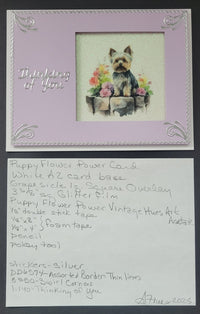 Thinking
of You
Puppy Flower Power Card
White A2 card base
Grape Sicle 1/2 Square Overlay
3 sq Glitter Film
Puppy Flower Power Vintage Hues Art
1/8" double stick tape
foam tape
pencil
pokey tool
stickers-silver
Assorted Border Thin lines
Swirl Corners
Thinking of You
2023